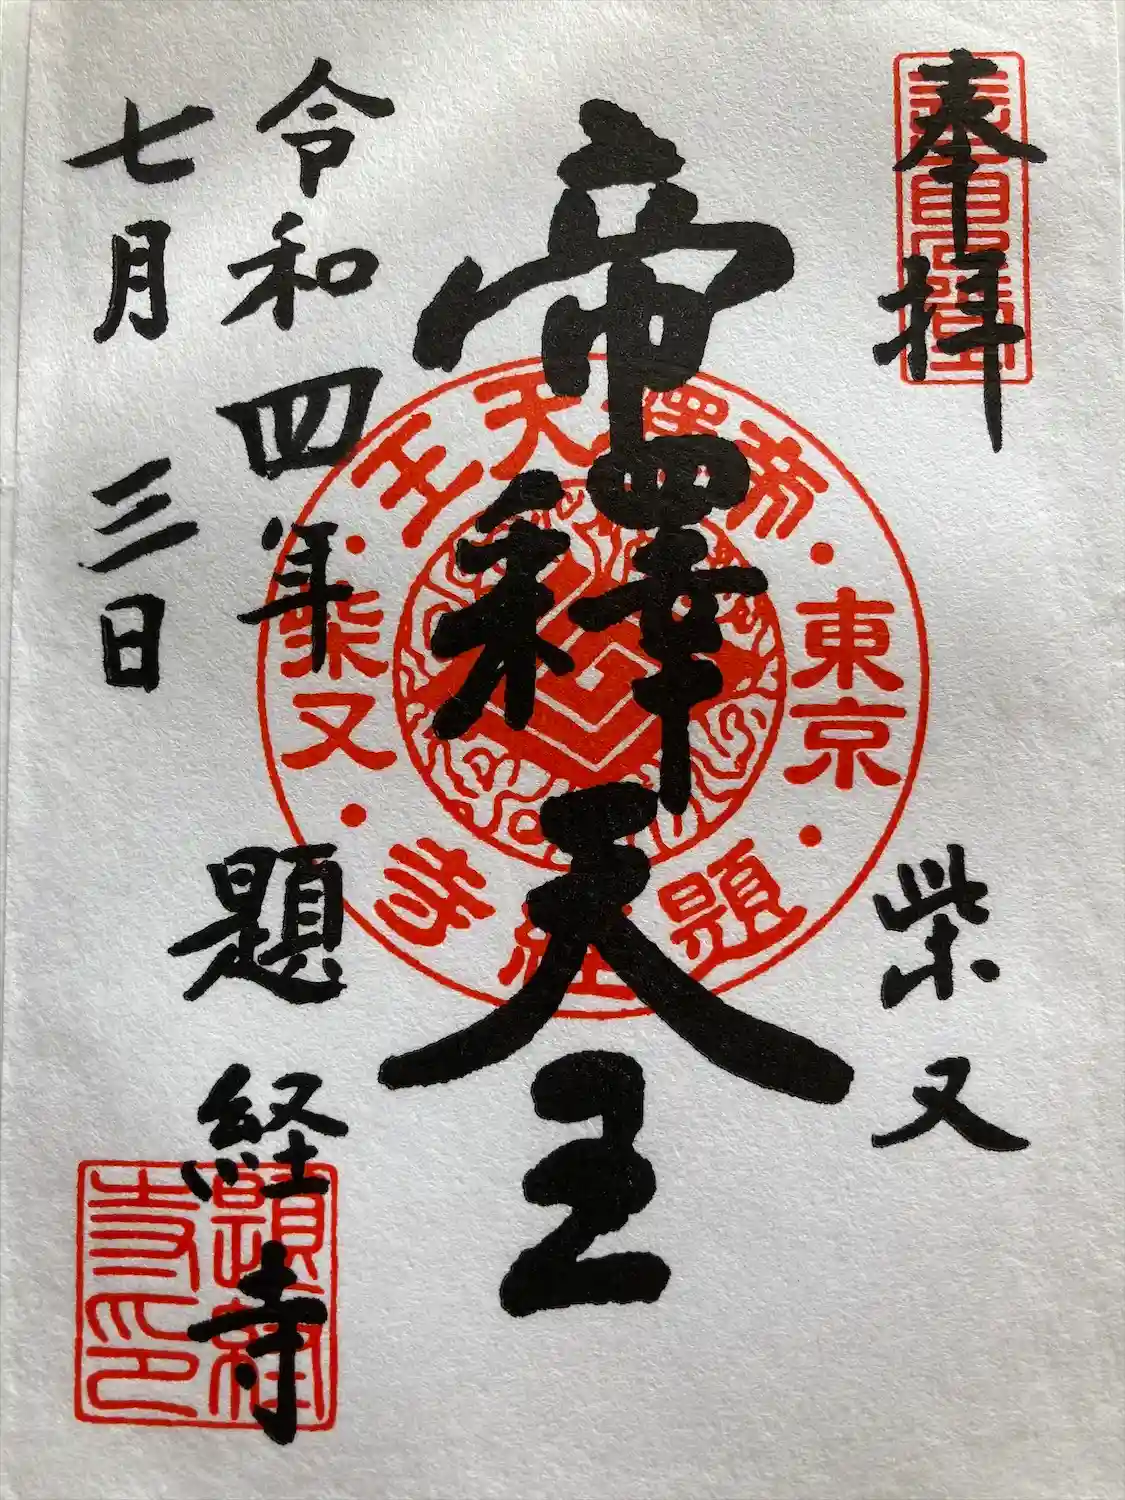 奉拝
柴又
帝釋天王
令和四年
七月三日
題経寺
東京
帝釋天王
柴又
題経寺
題経寺印